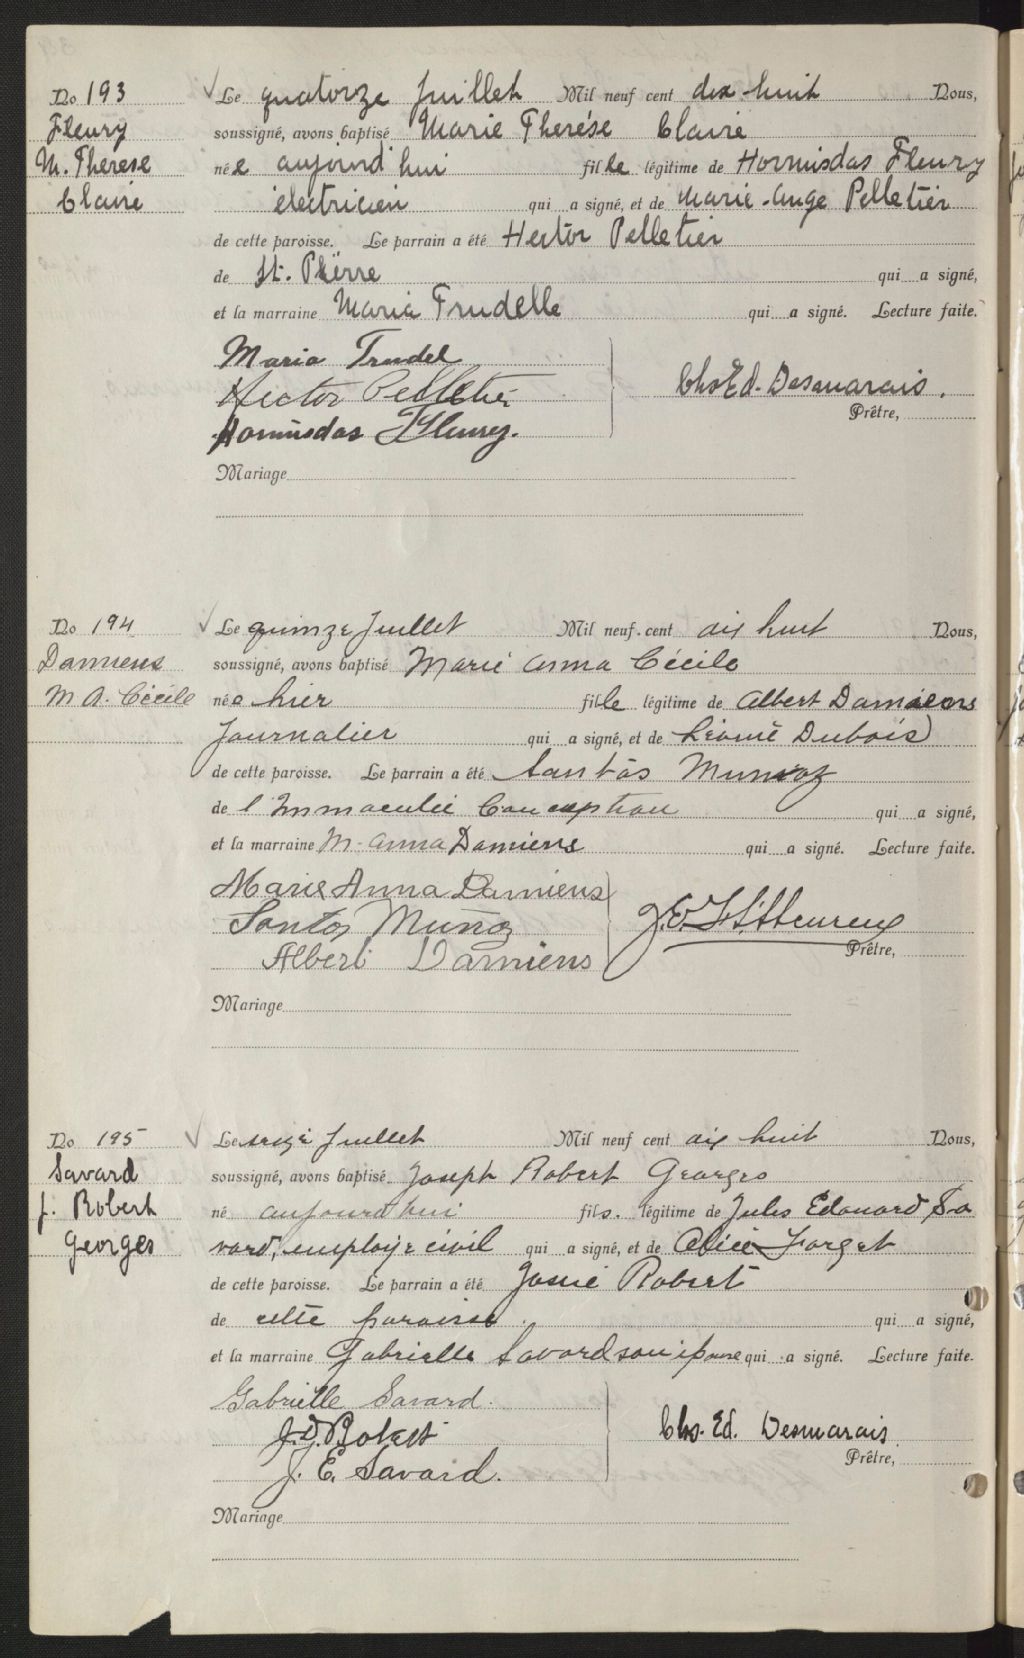 No 193
Fleury
M. Therese
Claire
Le quatorze Juillet Mil neuf cent dix-huit Nous,
soussigné, avons baptisé Marie Therése Claire
née aujourd'hui fille légitime de Hormisdas Fleury
électricien qui a signé, et de Marie-Ange Pelletier
de cette paroisse. Le parrain a été Hector Pelletier
de St. Pierre qui a signé,
et la marraine Maria Trudelle qui a signé. Lecture faite.
Maria Trudel
Hector Pelletier
Hormisdas Fleury.
Chs Ed. Desmarais.
Prêtre,
Mariage
No 194
Damiens
M A. Cécile
Le quinze Juillet Mil neuf cent dix huit Nous,
soussigné, avons baptisé Marie Anna Cécile
née hier fille légitime de Albert Damiens
Journalier qui a signé, et de Léonie Dubois
de cette paroisse. Le parrain a été Santos Munoz
de l'Immaculée Conception qui a signé,
et la marraine M-Anna Damiens qui a signé. Lecture faite.
Marie Anna Damiens
Santos Muñoz
Albert Damiens
J.E. L'Heureux
Prêtre,
Mariage
No 195
Savard
J. Robert
Georges
Le seize Juillet Mil neuf cent dix huit Nous,
soussigné, avons baptisé Joseph Robert Georges
né aujourd'hui fils. légitime de Jules Edouard Sa
vard, employé civil qui a signé, et de Alice Forget
de cette paroisse. Le parrain a été Josué Robert
de cette paroisse. qui a signé,
et la marraine Gabrielle Savard son épouse qui a signé. Lecture faite.
Gabrielle Savard.
J. E. Savard.
Chs. Ed. Desmarais.
Prêtre,
Mariage